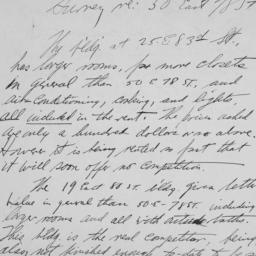 Survey re: 50 East 78 St
My bldg. at 25 E 83rd St.,
has larger rooms, far more closets
in general than 50 E 78 St., and
air conditioning, cooking, and lights,
all included in the rent. The prices asked
are only a hundred dollars or so above.
However it is being rented so fast that
it will soon offer no competition.
The 19 East 80 St. bldg. gives better
value in general than 50 E - 78 St. including
larger rooms and all with outside baths.
This bldg. is the real competitor, being
also not finished enough to date to